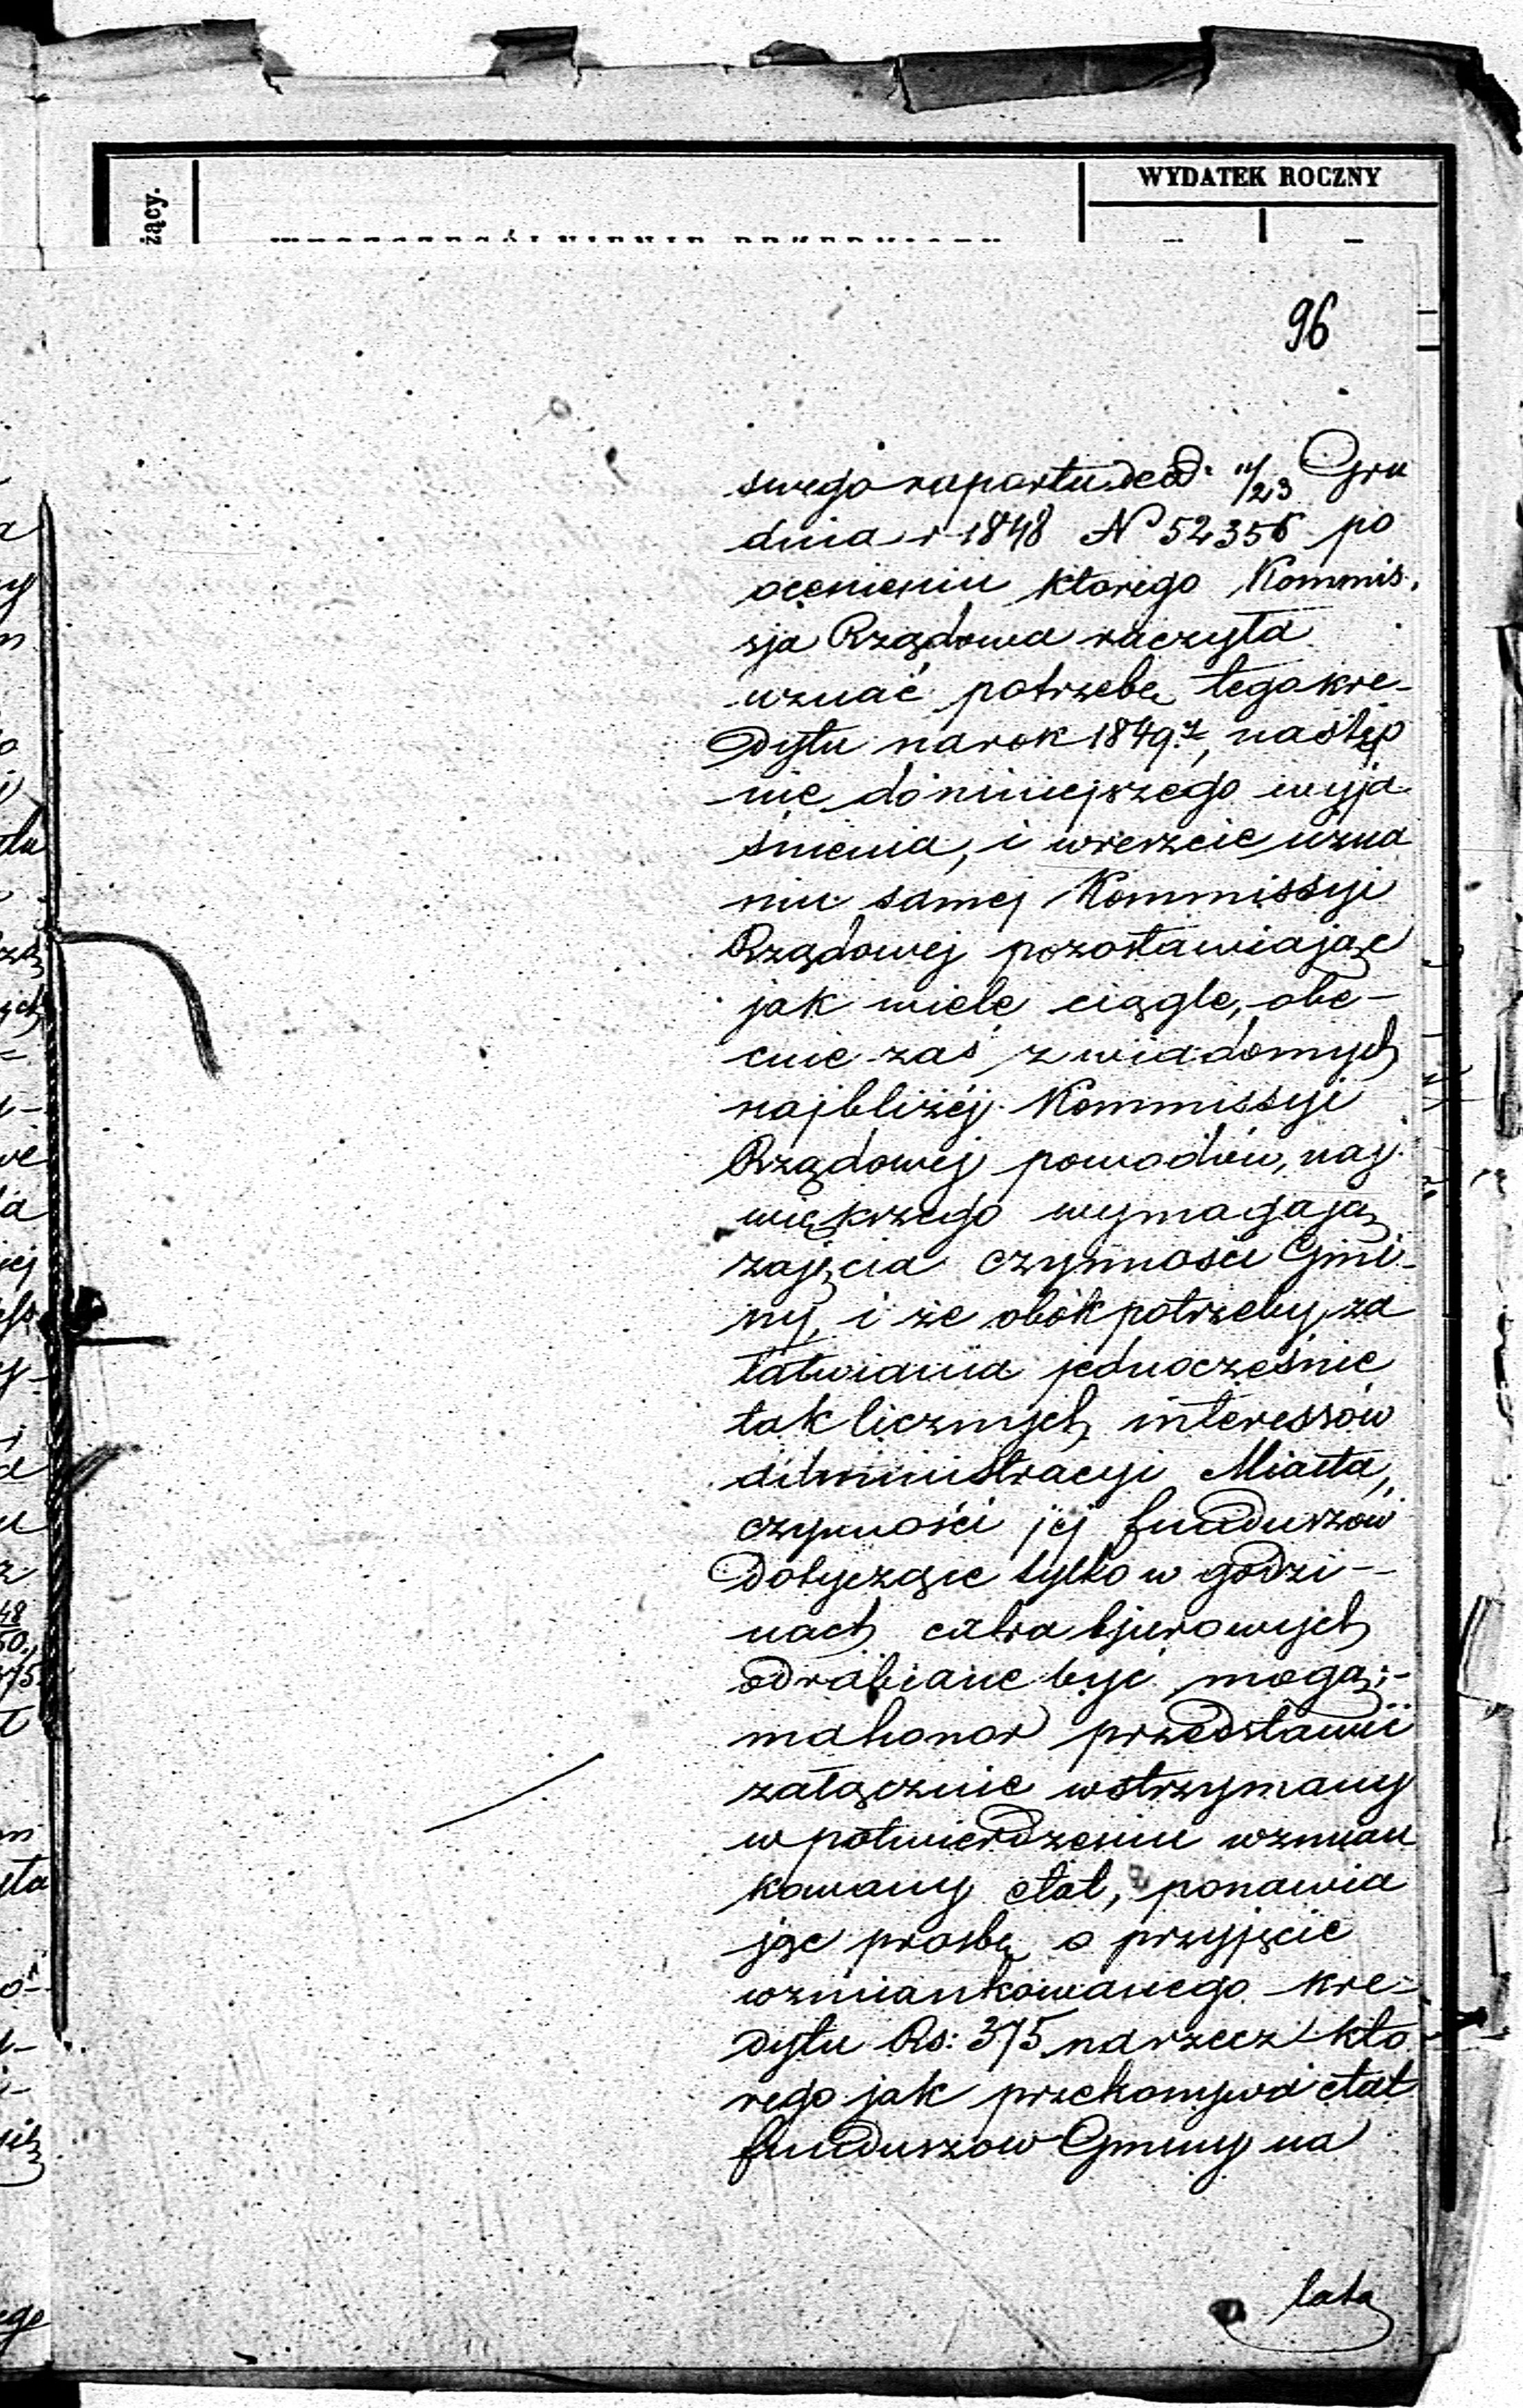 żący.
WYDATEK ROCZNY
96
swego raportu de d. 11/23 Gru
dnia r 1848 N 52356 po
ocenieniu którego Kommis-
sja Rządowa raczyła
uznać potrzebę tego kre-
dytu na rok 1849 r, następ
nie do niniejszego wyja
śnienia, i wreszcie uzna
niu samej Kommissyi
Rządowej pozostawiając
jak wiele ciągle, obe-
cnie zaś z wiadomych
najbliżéj Kommissyi
Rządowej powodów, naj
większego wymagają
zajęcia czynności Gmi-
ny, i że obok potrzeby za
łatwiania jednocześnie
tak licznych interessów
administracyi Miasta,
czynności jej funduszów
dotyczące tylko w godzi-
nach extra bjurowych
odrabiane być mogą;-
ma honor przedstawić
załącznie wstrzymany
w potwierdzeniu wzmian
kowany etat, ponawia
jąc prosbę o przyjęcie
wzmiankowanego kre-
dytu Rs: 375 na rzecz któ
rego jak przekonywa etat
funduszów Gminy na
lata